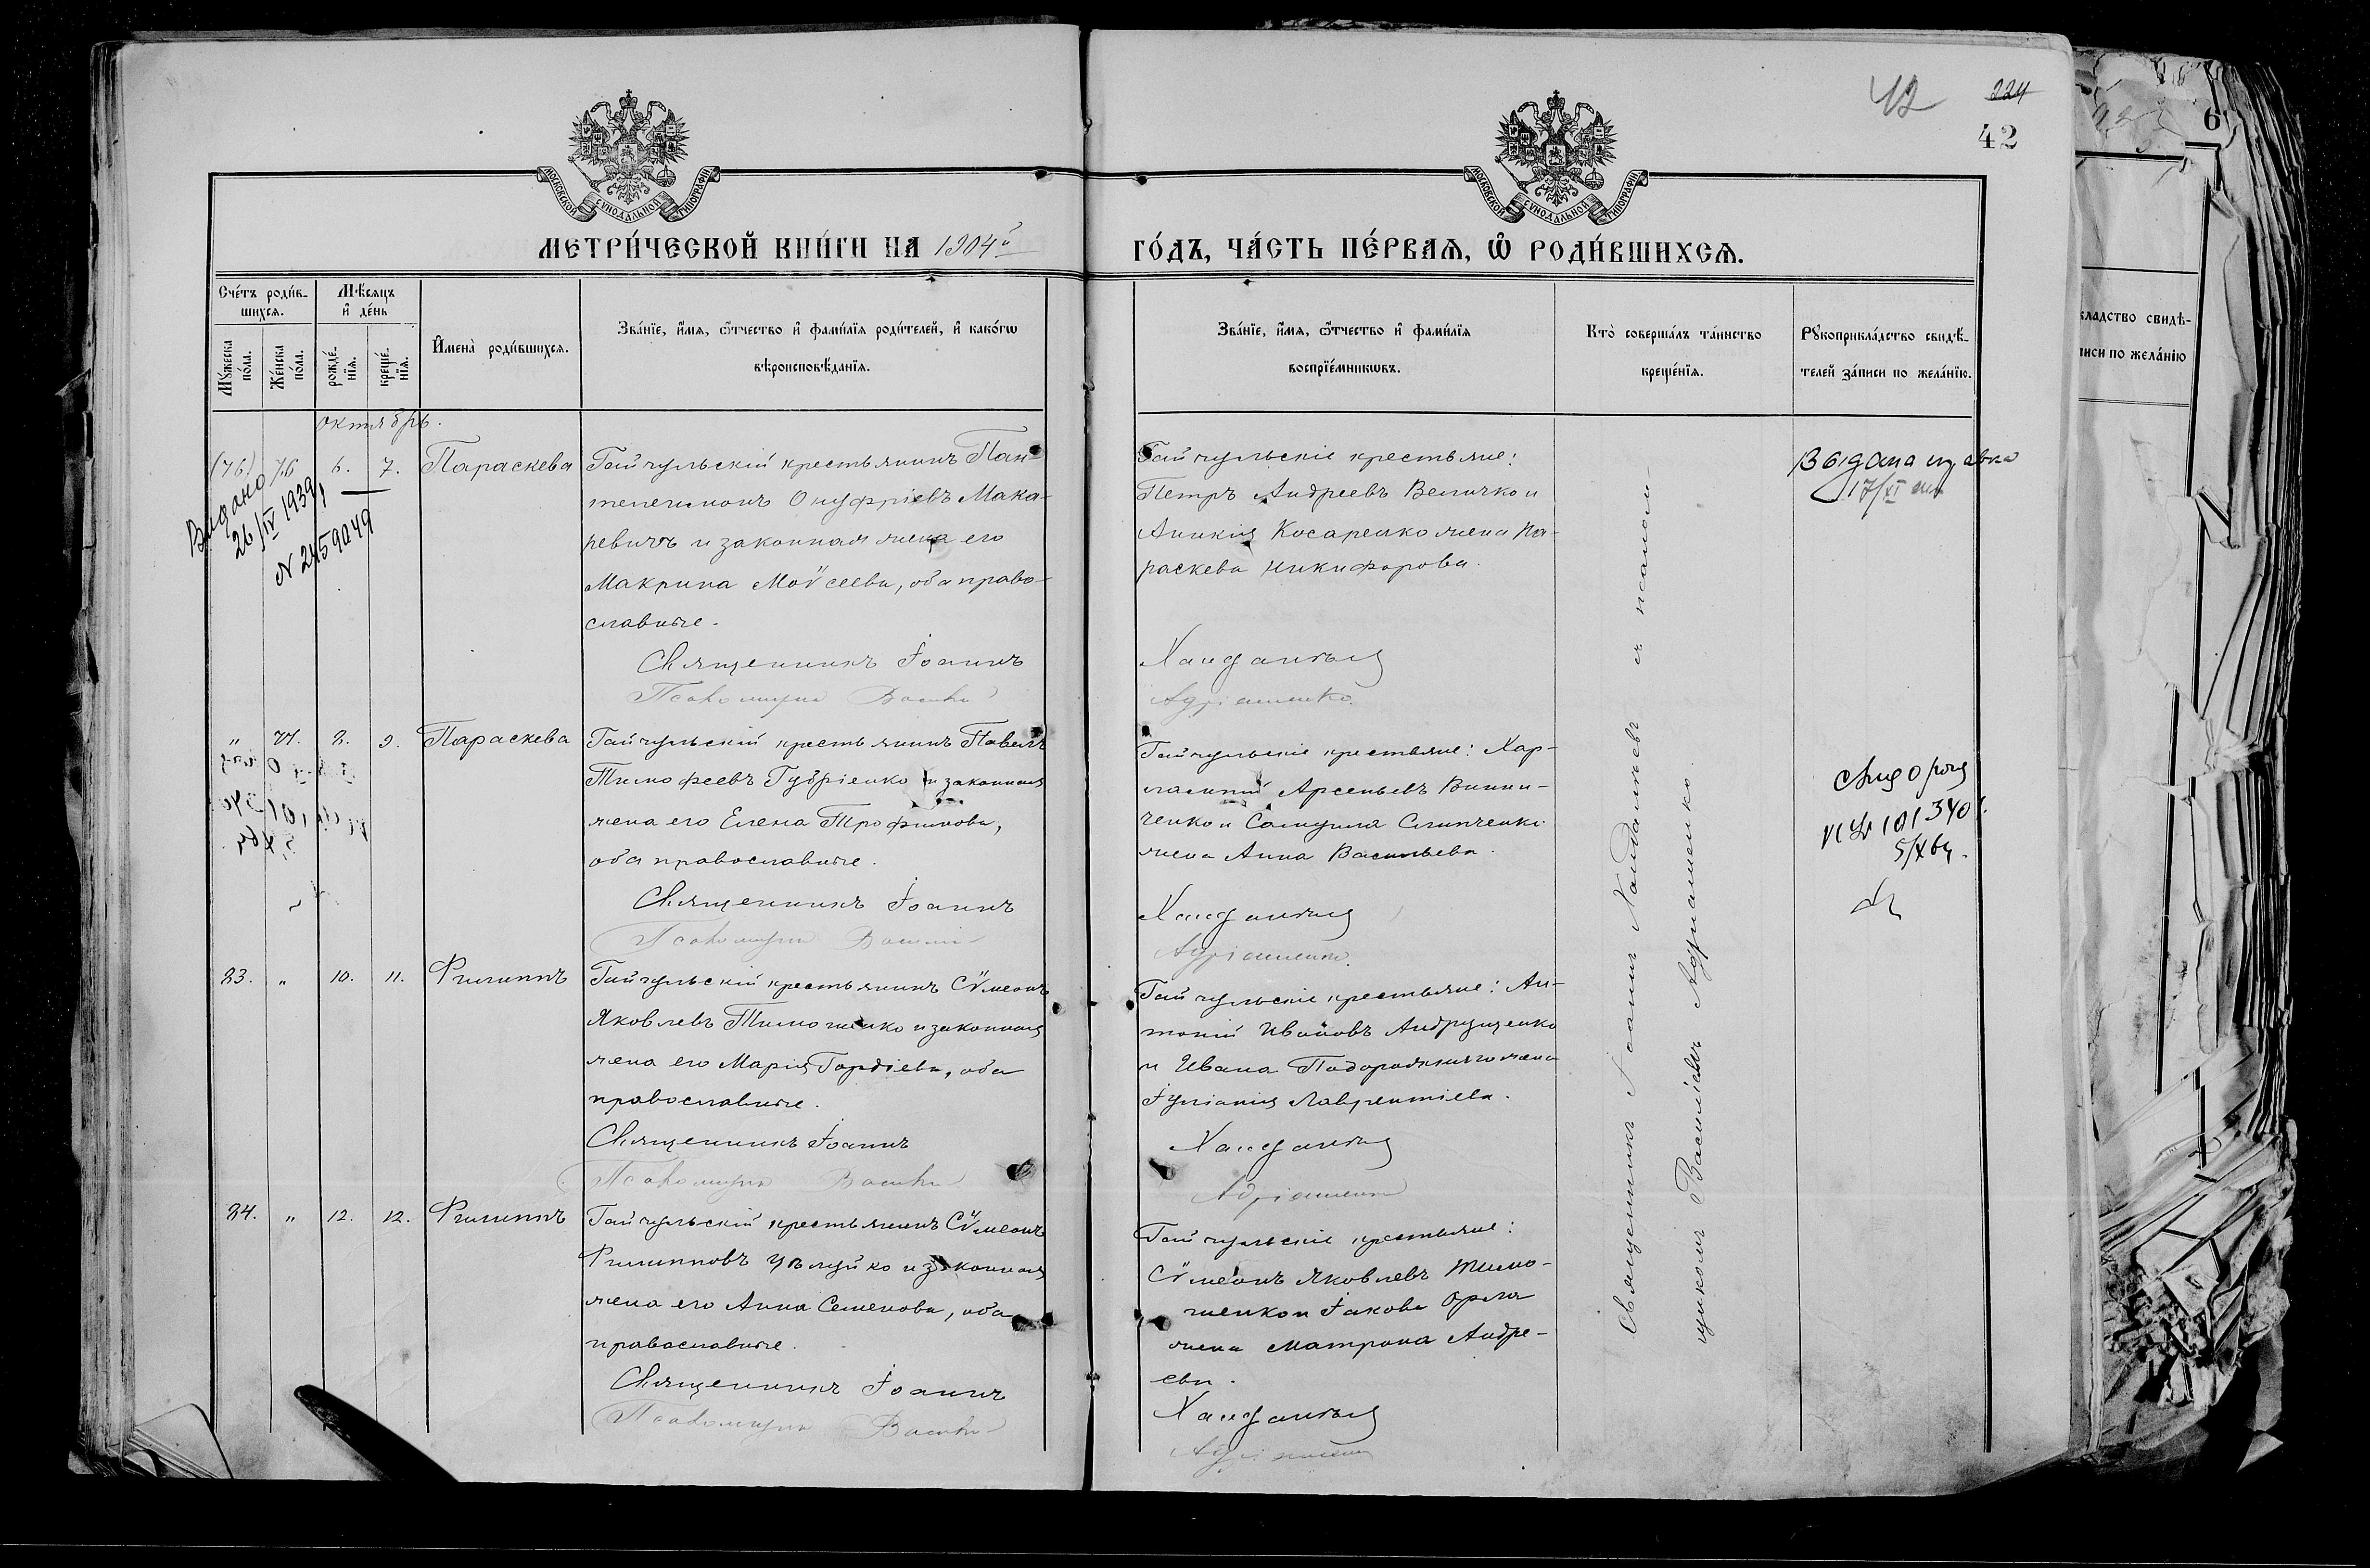 42
224
42
6
МОСКОВСКОЙ СѴНОДАЛЬНОЙ ТИПОГРАФІИ
МОСКОВСКОЙ СѴНОДАЛЬНОЙ ТИПОГРАФІИ
МЕТРИ́ЧЕСКОЙ КНИ́ГИ НА 1904й
ГО́ДЪ, ЧА́СТЬ ПЕ́РВАЯ, Ѡ РОДИ́ВШИХСЯ.
Сче́тъ роди́в-
шихся.
Мѣ́сяцъ
и де́нь
Мꙋ́жеска
по́ла.
Же́нска
по́ла.
рожде́-
нїя.
креще́-
нїя.
Имена̀ роди́вшихся.
Зва́нїе, и́мя, ѻ́тчество и фами́лїя роди́телей, и како́гѡ
вѣроисповѣ́данїя.
Зва́нїе, и́мя, ѻ́тчество и фами́лїя
воспрїе́мникѡвъ.
Кто̀ соверша́лъ та́инство
креще́нїя.
Рꙋкоприкла́дство свидѣ́-
телей за́писи по жела́нїю.
кладство свидѣ-
писи по жела́нїю
октябрь.
(76) 76 6. 7. Параскева
Гайчульскій крестьянинъ Пан-
телеимонъ Онуфріевъ Мака-
ревичъ и законная жена его
Макрина Моѵсеева, оба право-
славные.
Священникъ Іоаннъ
Псаломщик Василій
Гайчульскіе крестьяне:
Петръ Андреевъ Величко и
Аникія Косаренко жена Па-
раскева Никифорова.
Хайдантый
Адріаненко.
Видано
26/IV 1939
N 2459049
17/XI
" 77. 8. 9. Параскева
Гайчульскій крестьянинъ Павелъ
Тимофеевъ Губріенко и законная
жена его Елена Трофимова,
оба православные.
Священникъ Іоаннъ
Псаломщик Василій
Гайчульскіе крестьяне: Хар-
лампій Арсеньевъ Винни-
ченко и Самуила Слипченко
жена Анна Васильева.
Адріаненко.
101340
5/X 64.
23. " 10. 11. Филиппъ
Гайчульскій крестьянинъ Сѵмеонъ
Яковлевъ Тимошенко и законная
жена его Марія Гордіева, оба
православные.
Священникъ Іоаннъ
Псаломщик Василій
Гайчульскіе крестьяне: Ан-
тоній Ивановъ Андрущенко
и Ивана Подорожняго жена
Іуліанія Лаврентіева.
Адріаненко
24. " 12. 12. Филиппъ
Гайчульскій крестьянинъ Сѵмеонъ
Филипповъ Цѣлуйко и законная
жена его Анна Семенова, оба
православные.
Священникъ Іоаннъ
Псаломщик Василій
Гайчульскіе крестьяне:
Сѵмеонъ Яковлевъ Тимо-
шенко и Іакова Орла
жена Матрона Андре-
ева.
Адріаненко
Священникъ Іоаннъ съ псалом-
щикомъ Василіемъ Адріаненко.